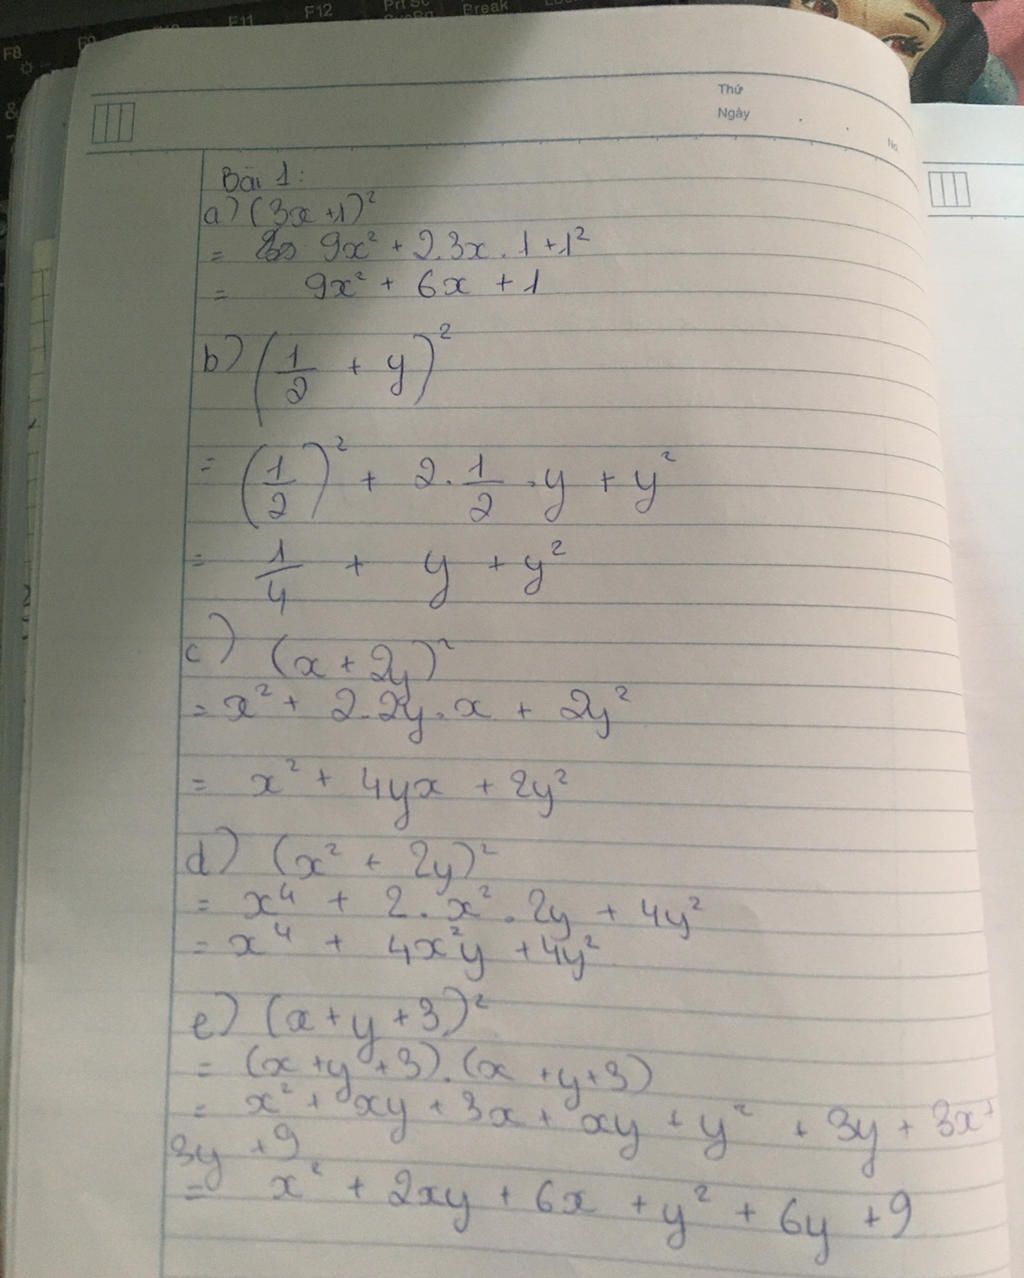 F8
F9
F11
F12
Prt Sc
Break
&
7
Thứ
Ngày
No
Bài 1:
a) (3x +1)²
= 9x² + 2.3x.1 +1²
= 9x² + 6x +1
b) (1/2 + y)²
= (1/2)² + 2.1/2.y + y²
= 1/4 + y + y²
c) (x + 2y)²
= x² + 2.2y.x + 2y²
= x² + 4yx + 2y²
d) (x² + 2y)²
= x⁴ + 2.x².2y + 4y²
= x⁴ + 4x²y + 4y²
e) (x+y+3)²
= (x+y+3).(x+y+3)
= x² + xy + 3x + xy + y² + 3y + 3x +
3y +9
= x² + 2xy + 6x + y² + 6y +9